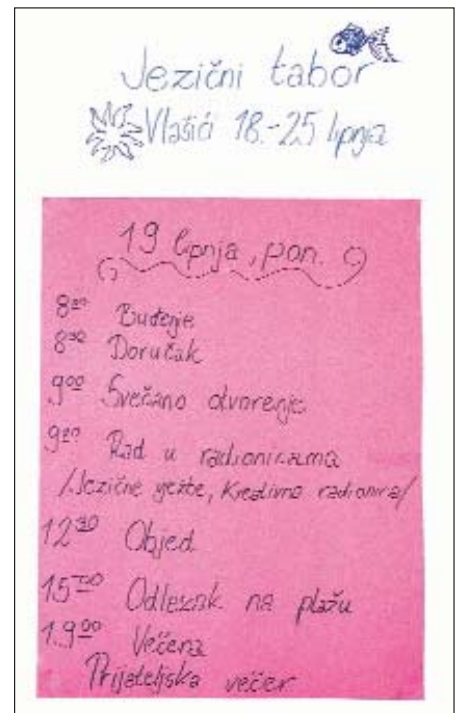 Jezični tabor
Vlašići 18.-25 lipnja
19 lipnja, pon.
8⁰⁰ Buđenje
8³⁰ Doručak
9⁰⁰ Svečano otvorenje
9²⁰ Rad u radionicama
/Jezične vježbe, Kreativna radionica/
12³⁰ Objed
15⁰⁰ Odlazak na plažu
19⁰⁰ Večera
Prijateljska večer